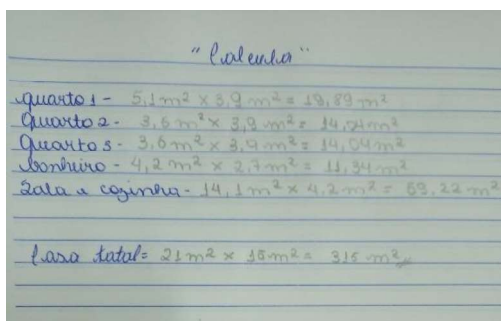 "Calculo"
Quarto 1 - 5,1 m² x 3,9 m² = 19,89 m²
Quarto 2 - 3,6 m² x 3,9 m² = 14,04 m²
Quarto 3 - 3,6 m² x 3,9 m² = 14,04 m²
banheiro - 4,2 m² x 2,7 m² = 11,34 m²
Sala e cozinha - 14,1 m² x 4,2 m² = 59,22 m²
Casa total = 21 m² x 15 m² = 315 m²